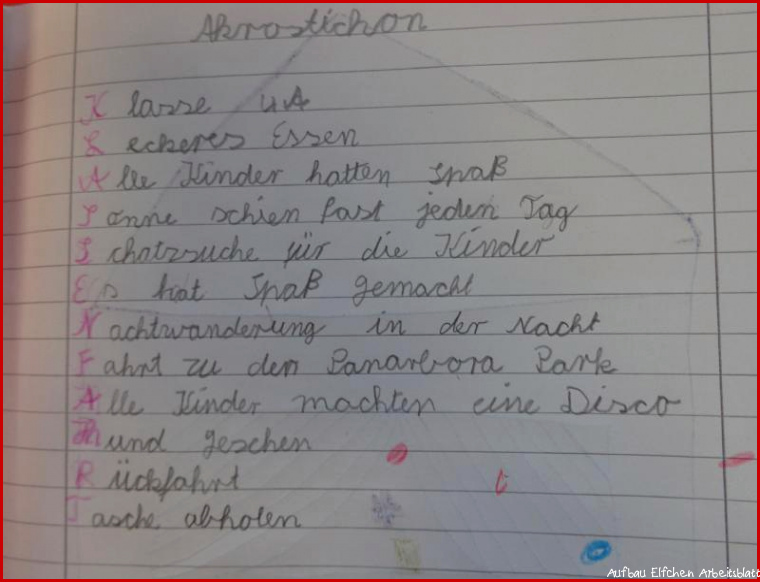 Akrostichon
Klasse 4A
Leckeres Essen
Alle Kinder hatten Spaß
Sonne schien fast jeden Tag
Schatzsuche für die Kinder
Es hat Spaß gemacht
Nachtwanderung in der Nacht
Fahrt zu den Panarbora Park
Alle Kinder machten eine Disco
Hund gesehen
Rückfahrt
Tasche abholen
Aufbau Elfchen Arbeitsblatt